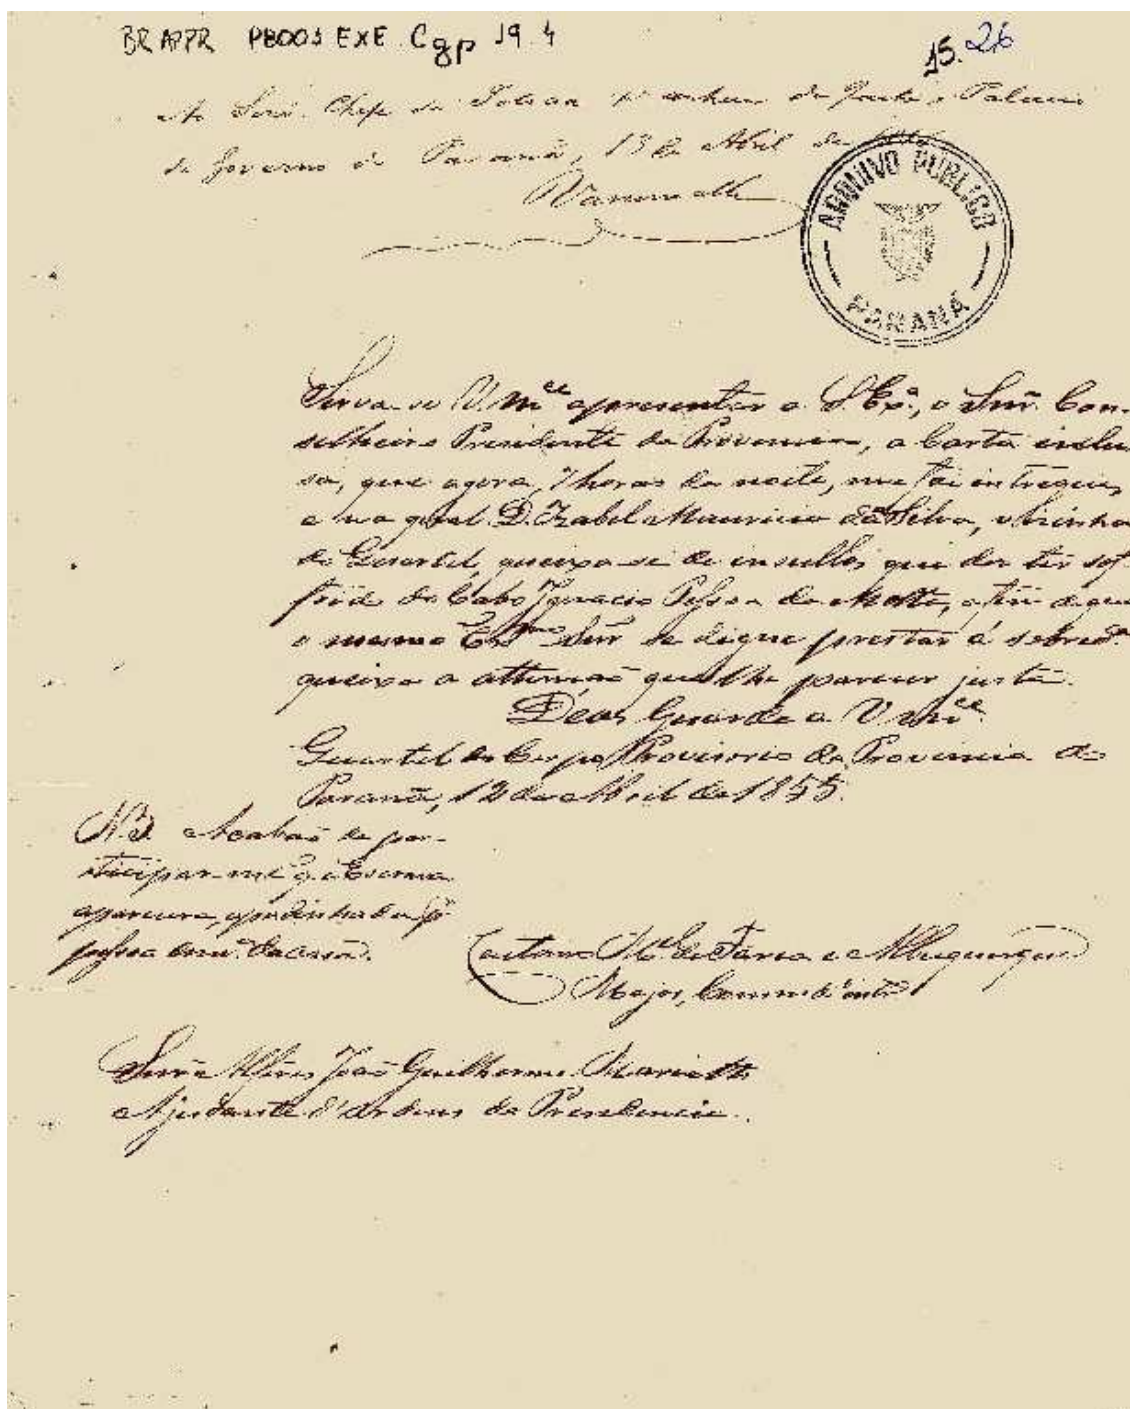 BR APPR PB001 EXE. Cgp 19.4
15. 26
Ao Snr. Chefe de Policia Palacio
do Governo do Paraná, 13 de Abril de
ARQUIVO PUBLICO
PARANÁ
Sirva-se V. Mce apresentar a S. Exa, o Snr. Con-
selheiro Presidente da Provincia, a Carta inclu
sa, que agora, 7 horas da noite, me foi entregue,
e na qual D. Izabel Mauricia da Silva, visinha
do Quartel, queixa-se de insultos que diz ter sof-
frido do Cabo Ignacio Pessoa da Motta, a fim de que
o mesmo Exmo Snr se digne prestar á sobred.a
queixa a attenção que lhe parecer justa.
Deos Guarde a V. Mce
Quartel do Corpo Provisorio da Provincia do
Paraná, 12 de Abril de 1855.
N.B. Acabaõ de par-
ticipar-me q. a Escrava
apareceu, apadrinhada p.r
pessoa da casa.
Caetano M.el de Faria e Albuquerque
Major, Command.ante
Snr. Alferes João Guilherme
Ajudante d'ordens da Presidencia.